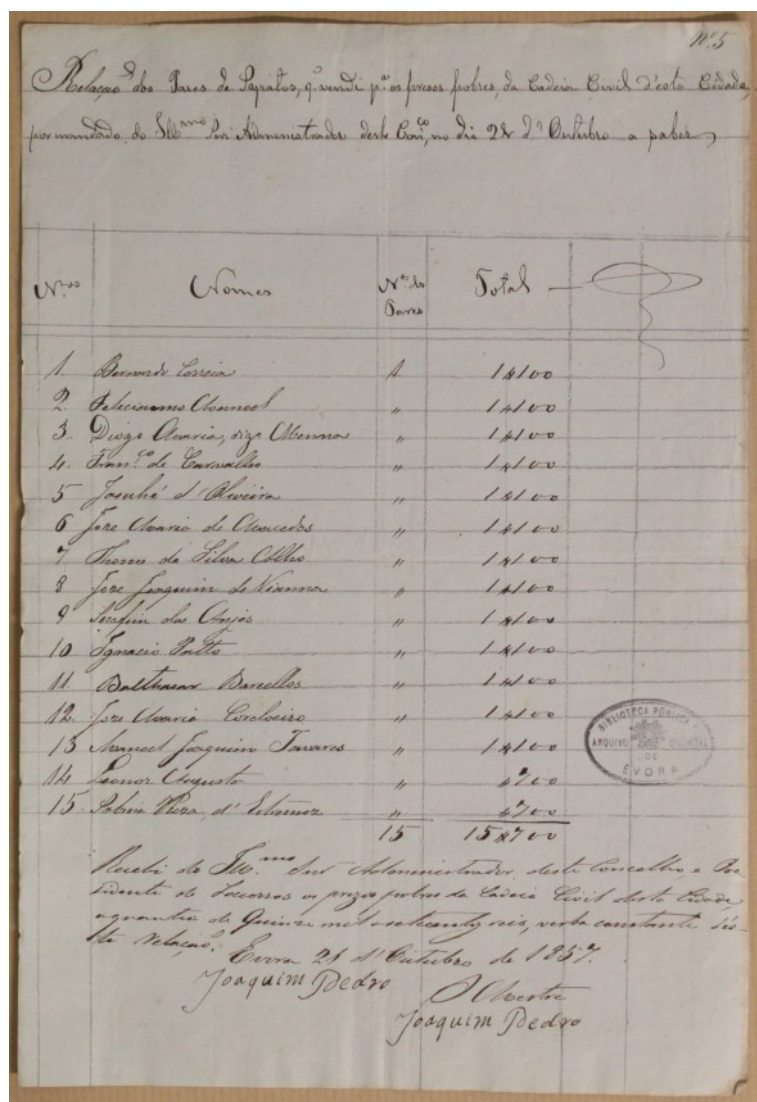 Nº 5
Relação dos Pares de Sapatos, q. vendi pª os presos pobres, da Cadeia Civil d'esta Cidade,
por mandado do Illmo Snr Administrador deste Conco, no dia 28 d' Outubro a saber
Nros Nomes Nos de Pares Total
1. Bernardo Correia 1 1$100
2. Feliciano Manoel " 1$100
3. Diogo Maria, digo Menna " 1$100
4. Franco de Carvalho " 1$100
5 Josuhé d'Oliveira " 1$100
6 Jose Maria de Macedos " 1$100
7 Thome da Silva Coelho " 1$100
8 Jose Joaquim de Vianna " 1$100
9 Serafim dos Anjos " 1$100
10 Ignacio Patto " 1$100
11. Balthazar Barcellos " 1$100
12. Jose Maria Cordoeiro " 1$100
13 Manoel Joaquim Tavares " 1$100
14 Leonor Augusta " $700
15. Roza, d'Estremoz " $700
15 15$700
Recebi do Illmo Snr Administrador deste Concelho, e Pre-
zidente de Soccorros os prezos pobres da Cadeia Civil desta Cidade,
a quantia de Quinze mil e setecentos reis, verba constante dés-
ta Relação.
Evora 28 d'Outubro de 1857.
Joaquim Pedro
O Mestre
Joaquim Pedro
BIBLIOTECA PÚBLICA E
ARQUIVO DISTRITAL
DE
EVORA